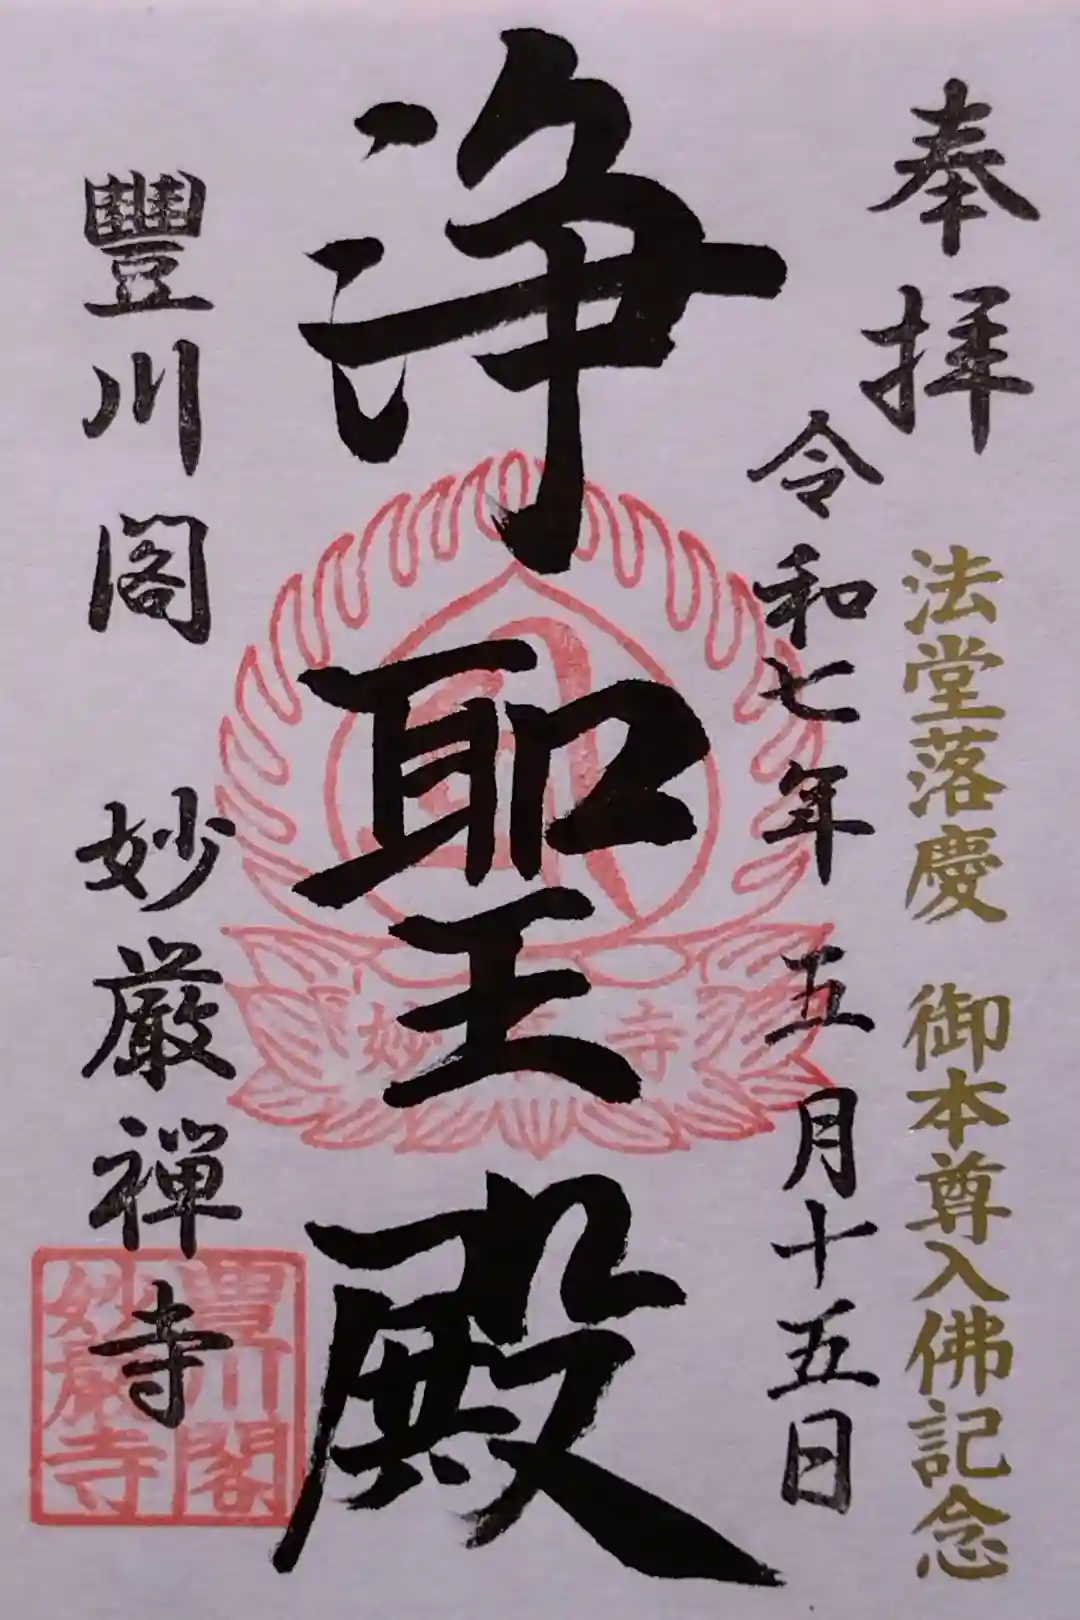 奉拝
法堂落慶 御本尊入佛記念
令和七年 五月十五日
浄聖殿
妙 寺
豐川閣 妙厳禅寺
豐川閣
妙嚴寺